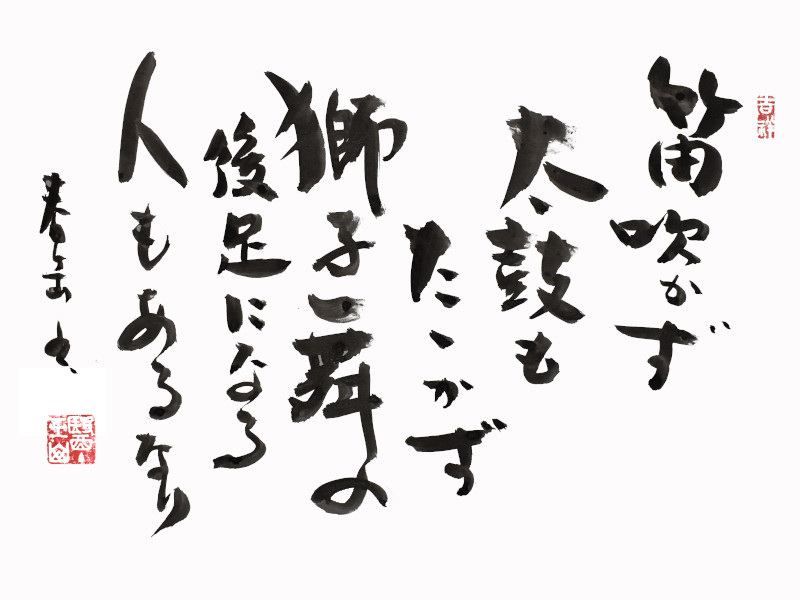 吉祥
笛吹かず
太鼓も
たゝかず
獅子舞の
後足になる
人もあるなり
春岳書